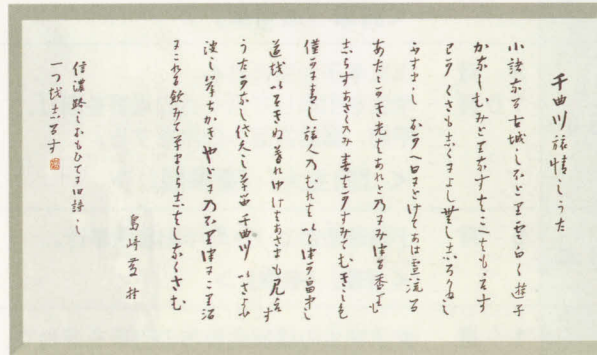 千曲川旅情のうた
小諸なる古城のほとり雲白く遊子
かなしむみどりなすはこべはもえず
わかくさもしくによしなししろがねの
ふすまのおかべ日にとけてあは雪流る
あたゝかき光はあれど乃にみつる香も
しらずあさくのみ春はかすみてむぎの色
僅かに青し旅人のむれはいくつか畠中の
道をいそぎぬ暮れゆけばあさまも見えず
うたかなし佐久の草笛千曲川いざよふ
波の岸ちかきやどにのぼりつにごり酒
にごれる飲みて草まくらしばしなぐさむ
島崎藤村
信濃路のおもひでに旧詩の
一つをしるす